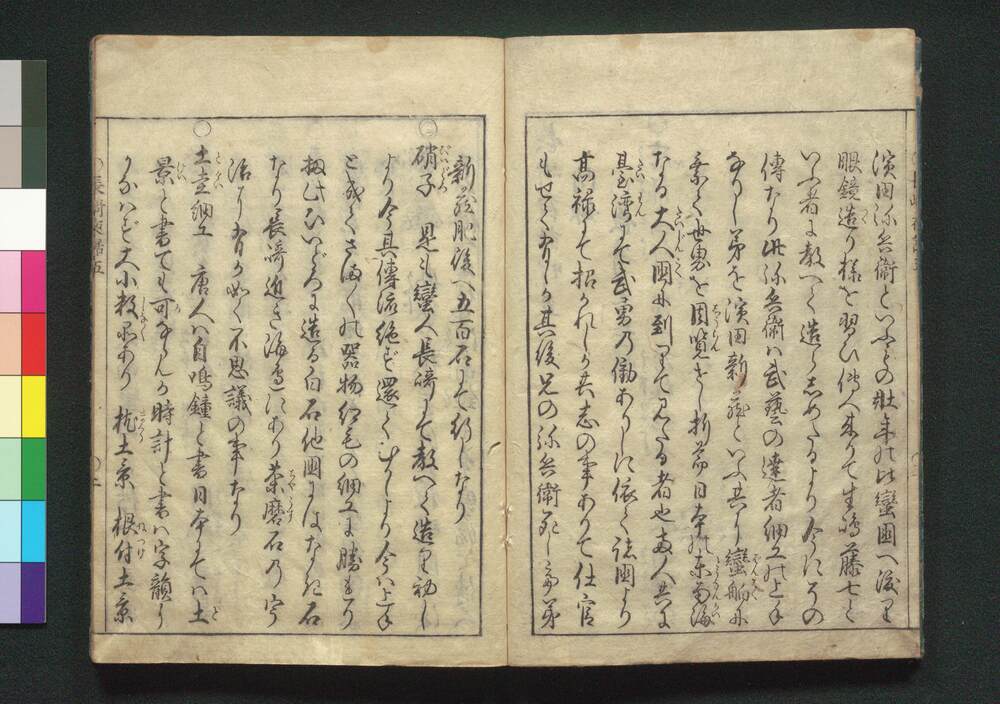 濱田弥兵衛といふもの壮年の比蛮国へ渡り
眼鏡造り様を習ひ伝へ来りて生嶋藤七と
いふ者に教へて造らしめたるより今にその
傳なり此弥兵衛ハ武藝の達者細工の上手
なりし弟を濱田新蔵といふ共に蠻舶に
乗て世界を周覧せし折節日本の東南海
なる大人國に到りて見たる者也両人共に
臺湾にて武勇の働ありしに依て諸国より
高禄にて招かれしか共志の事ありて仕官
もせて有しか其後兄の弥兵衛死し弟
新蔵肥後へ五百石にて行しなり
○硝子　是も蠻人長崎にて教へて造り初し
より今其傳流絶ず還てむかしより今ハ上手
と成てさま〳〵の器物紅毛の細工に勝れり
扨此ひいどろに造る白石他国にはなき石
なり長崎近き海辺にあり茶磨石のうす
活に有か如く不思議の事なり
○土圭細工　唐人ハ自鳴鐘と書日本にてハ土
景と書ても可ならんか時計と書ハ字韻に
かなハず大小数品あり　枕土景　根付土景
長崎夜話五